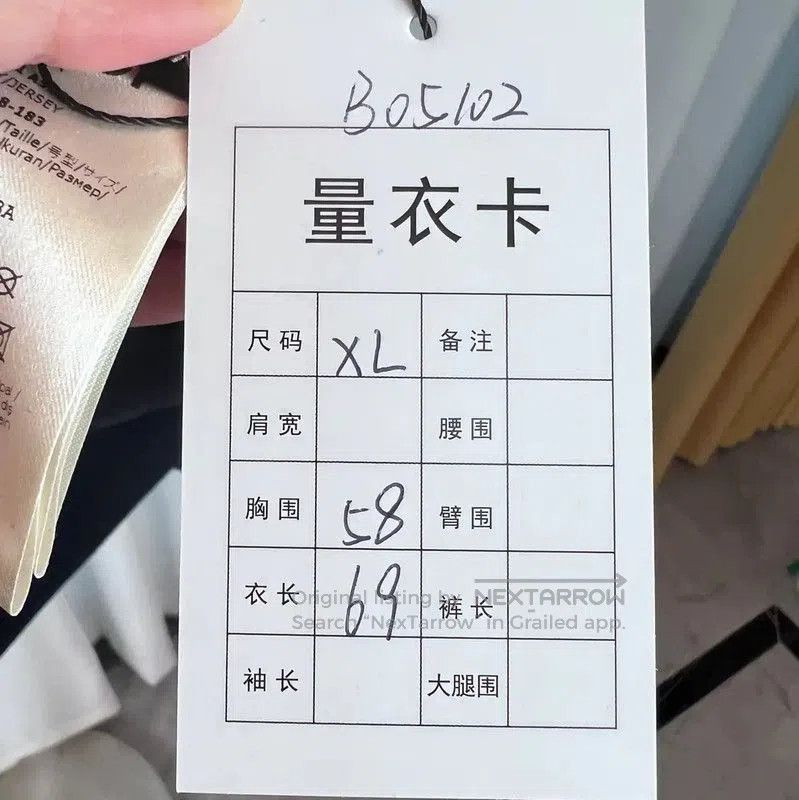 B05102
量衣卡
尺码 XL 备注
肩宽 腰围
胸围 58 臂围
衣长 69 裤长
袖长 大腿围
Original listing by NEXTARROW
Search "NexTarrow" in Grailed app.
/JERSEY
8-183
/Taille/号型/サイズ/
/Размер/